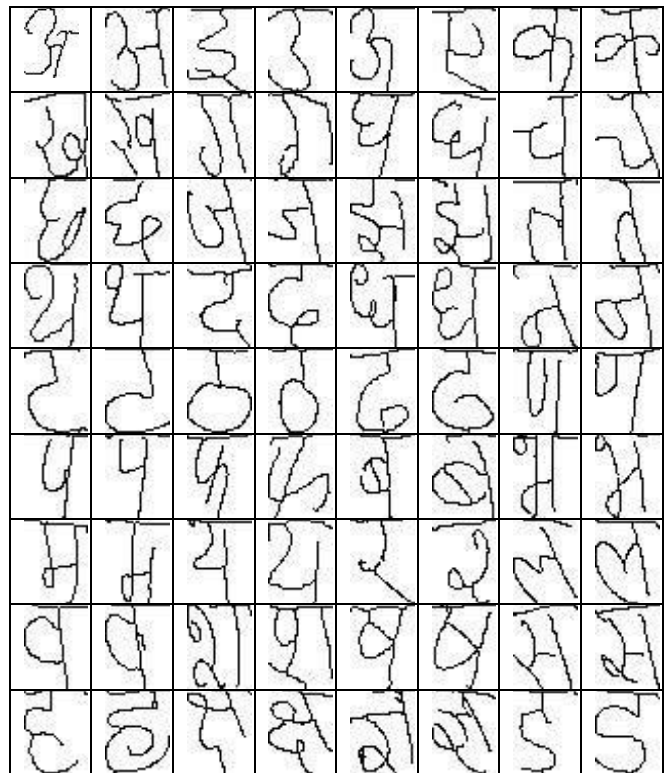 अ अ इ इ उ उ क क
ख ख ग ग घ घ च च
छ छ ज ज झ झ त त
थ थ द द ध ध न न
ट ट ठ ठ ढ ढ
प प फ फ ब ब भ भ
म म य य र र ल ल
व व श श ष ष स स
ह ह ज्ञ ज्ञ क्ष क्ष ड ड